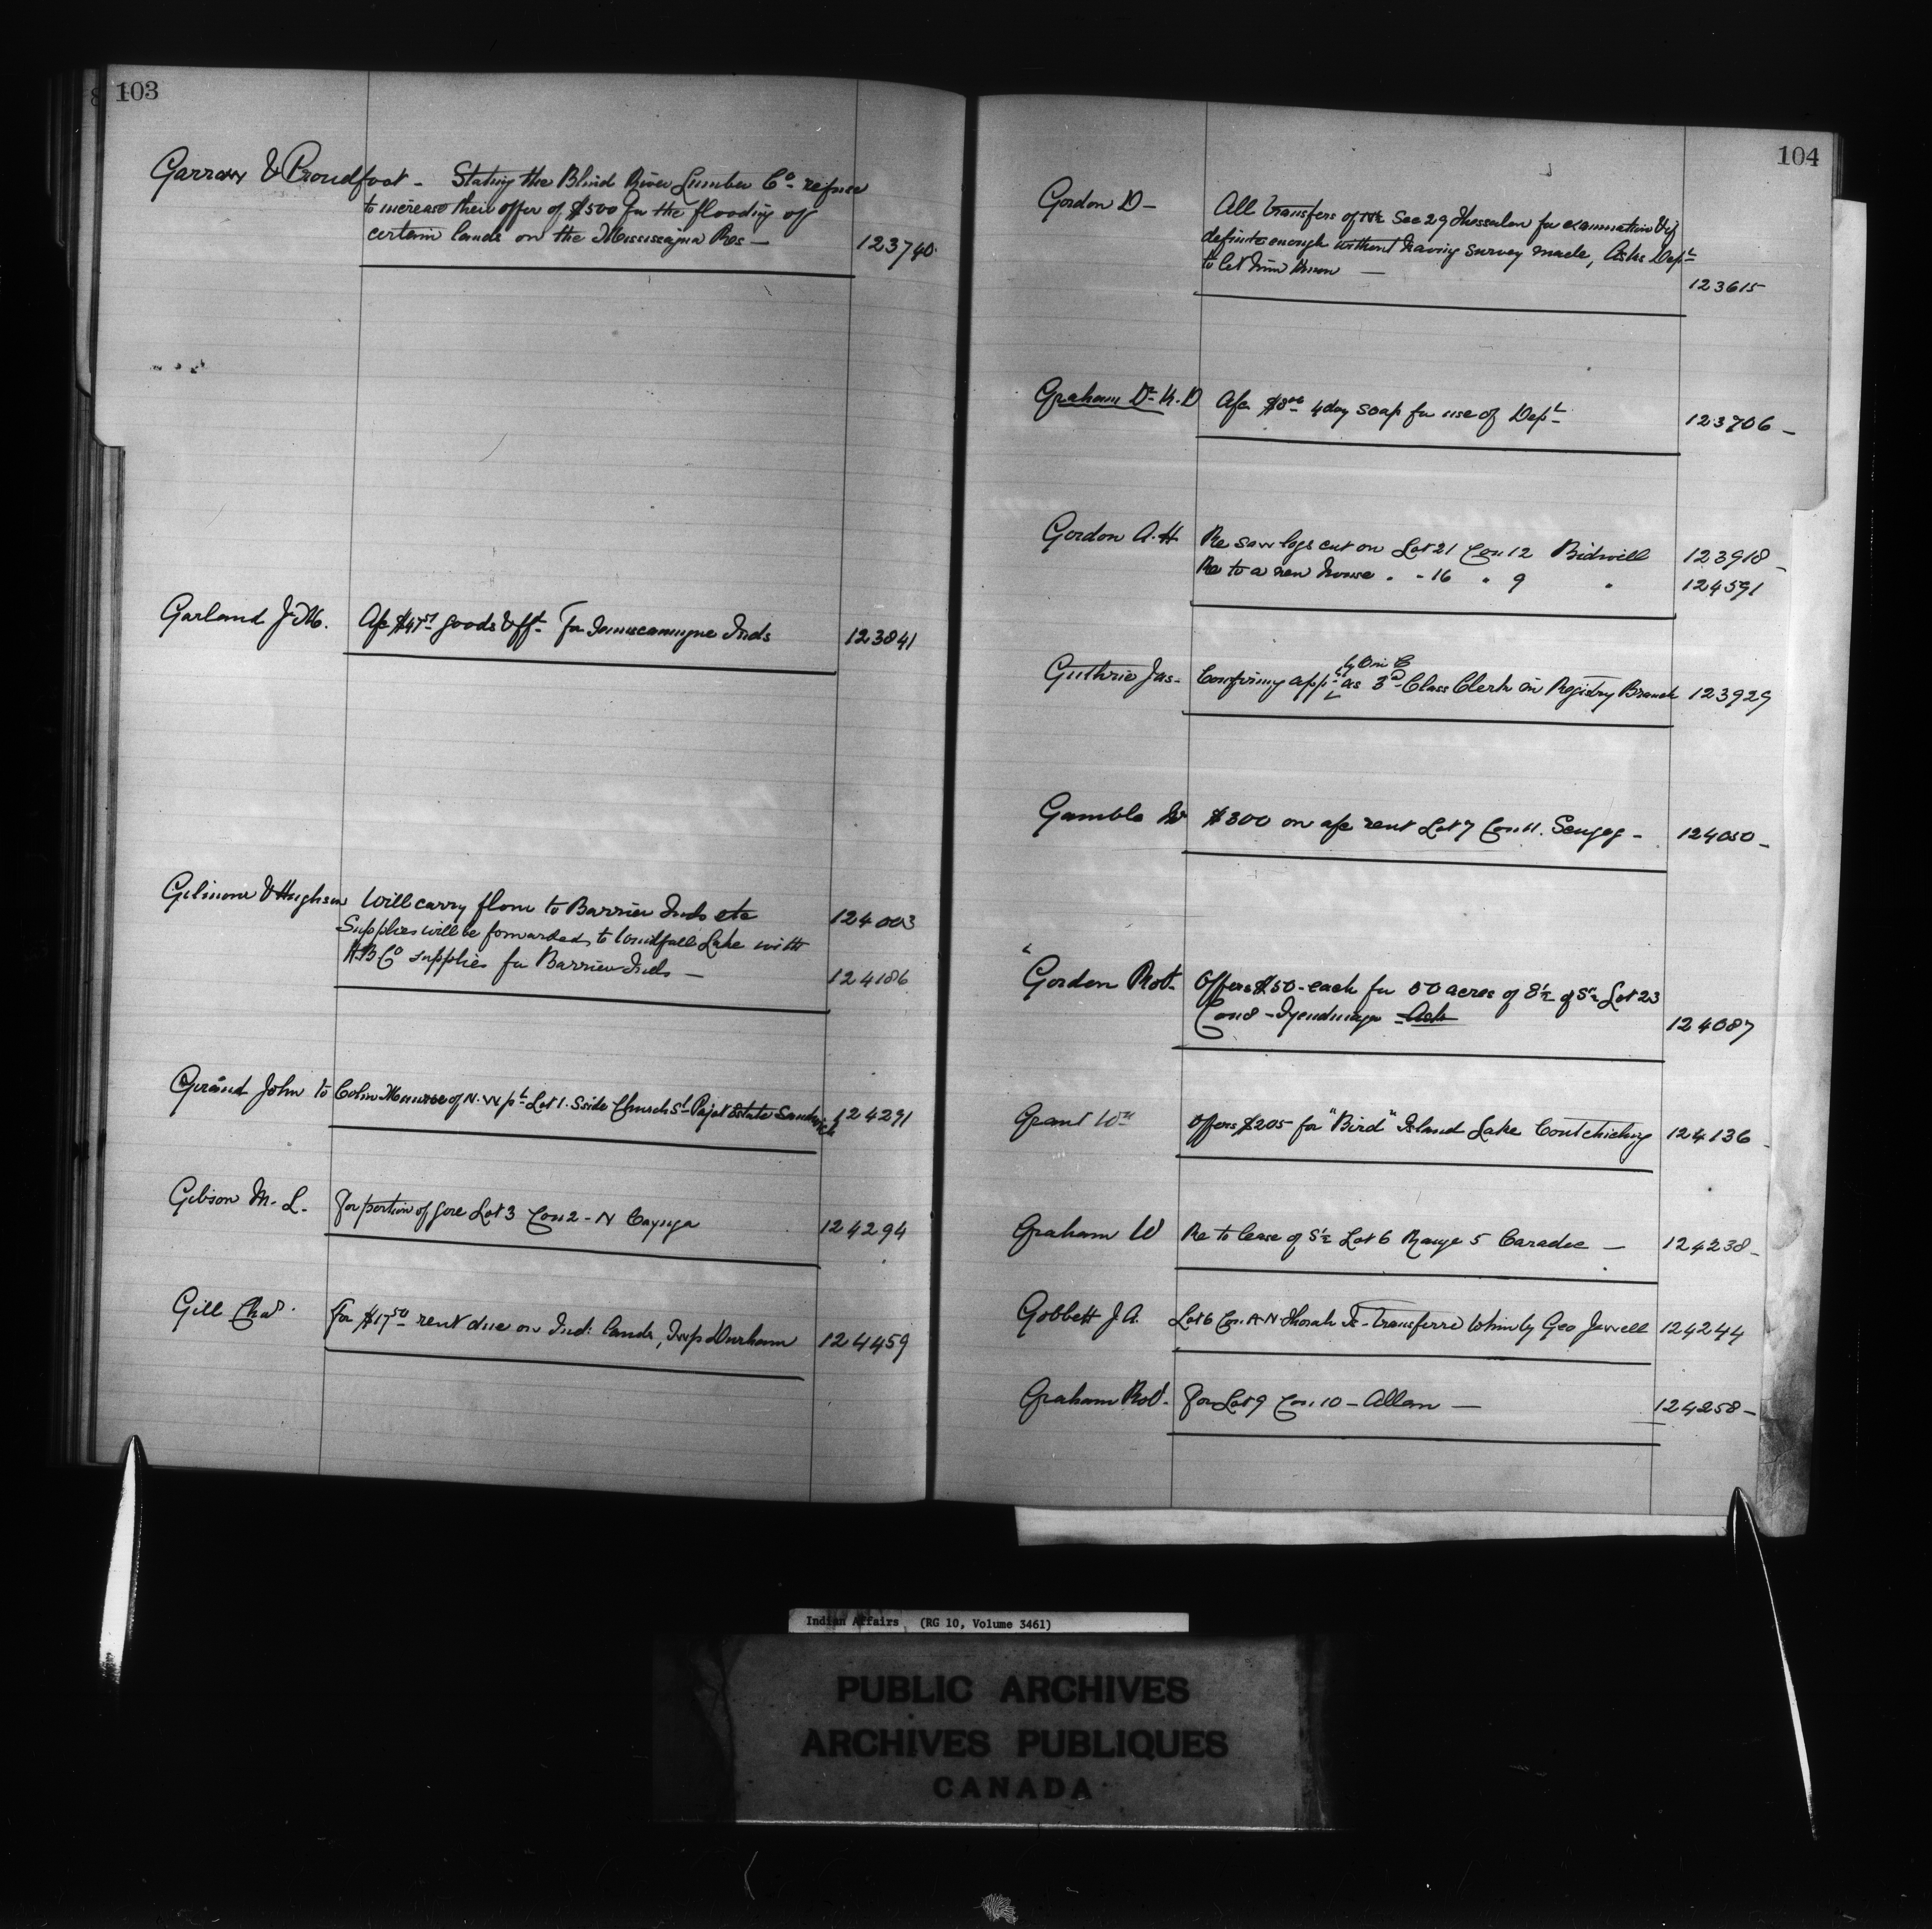 103
Garrow & Proudfoot - Stating the Blind River Lumber Co refuse
to increase their offer of $500 for the flooding of
certain lands on the Mississagua Res - 123740
Garland J. M. A/c $47 goods &ff for Temiscamingue Inds 123841
Gilmour & Hughson Will carry flour to Barrier Inds etc 124003
Supplies will be forwarded to Windfall Lake with
H.B. Co supplies for Barrier Inds - 124186
Girard John to Colin of N.W pt Lot 1. S side Church St Pajot Estate Sandwich 124291
Gibson M. L. For portion of gore Lot 3 Con 2 - N Cayuga 124294
Gill Chas. For $17 50 rent due on Ind: lands, Twp Durham 124459
104
Gordon D - All transfers of Sec 29 Thessalon for examination & if
definite enough without having survey made, Asks Dept
to let him know - 123615
Graham Dr K. D A/c $8 00 4 doz soap for use of Dept 123706 -
Gordon A. H Re saw logs cut on Lot 21 Con 12 Bidwill 123918 -
Re to a new house " - 16 " 9 " 124591
by O in C
Guthrie Jas - Confirming appt as 3rd Class Clerk in Registry Branch 123929
Gamble $300 on a/c rent Lot 7 Con 11. Scugog - 124050 -
Gordon Robt - Offers $50 - each for 50 acres of S½ of S½ Lot 23
Con 8 - Tyendinaga - Ack 124087
Grant Wm Offers $205 for "Bird" Island Lake Coutchiching 124136
Graham W Re to lease of S½ Lot 6 Range 5 Caradoc - 124238 -
Gobbett J. A. Lot 6 Con A N Thorah Is - transferred to him by Geo Jewell 124244
Graham Robt. For Lot 9 Con. 10 - Allan - 124258 -
Indian Affairs (RG 10, Volume 3461)
PUBLIC ARCHIVES
ARCHIVES PUBLIQUES
CANADA